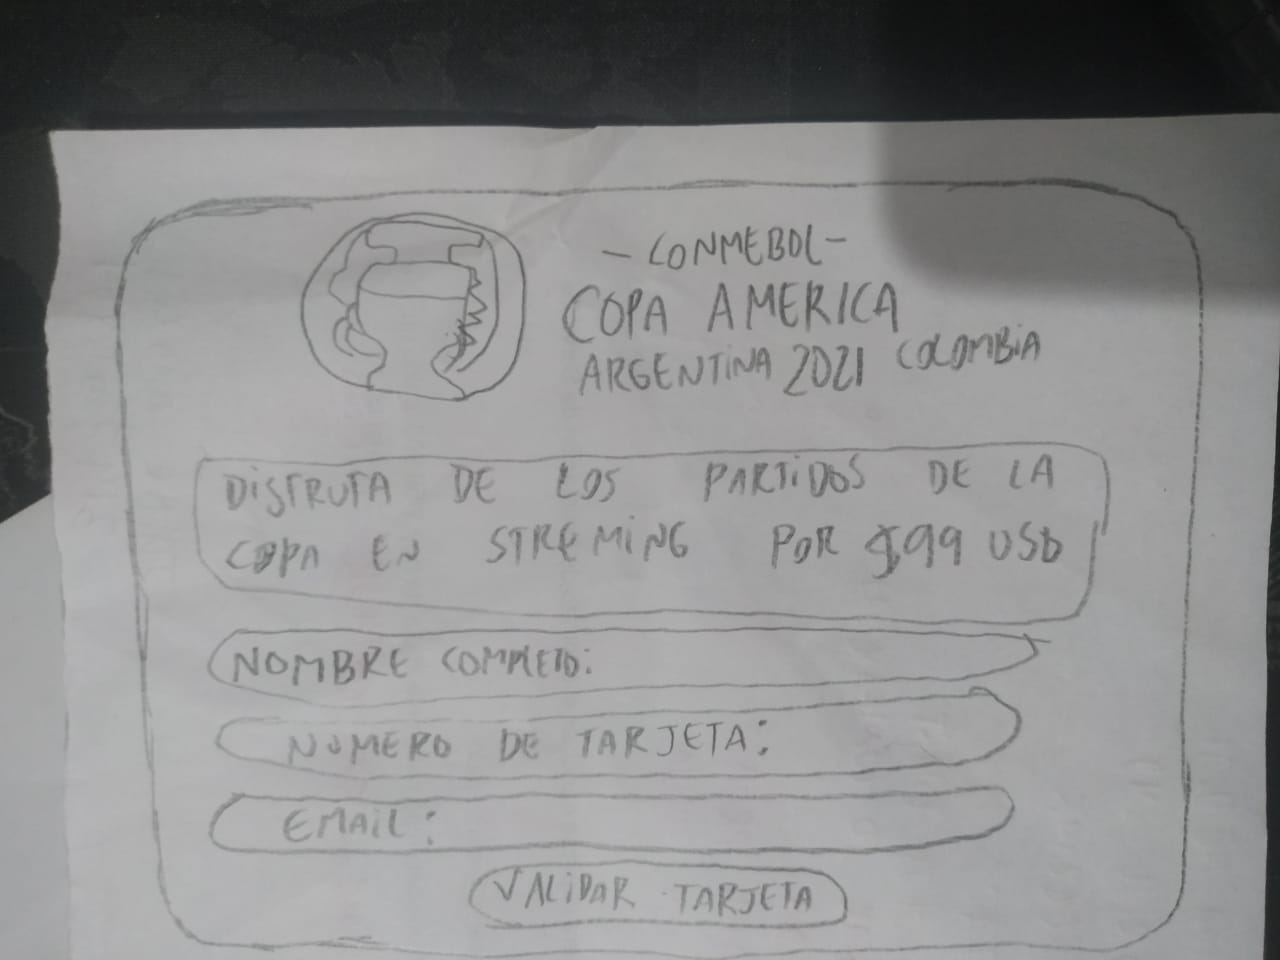 - CONMEBOL -
COPA AMERICA
ARGENTINA 2021 COLOMBIA
DISFRUTA DE LOS PARTIDOS DE LA
COPA EN STREMING POR $99 USD
NOMBRE COMPLETO:
NUMERO DE TARJETA:
EMAIL:
VALIDAR TARJETA